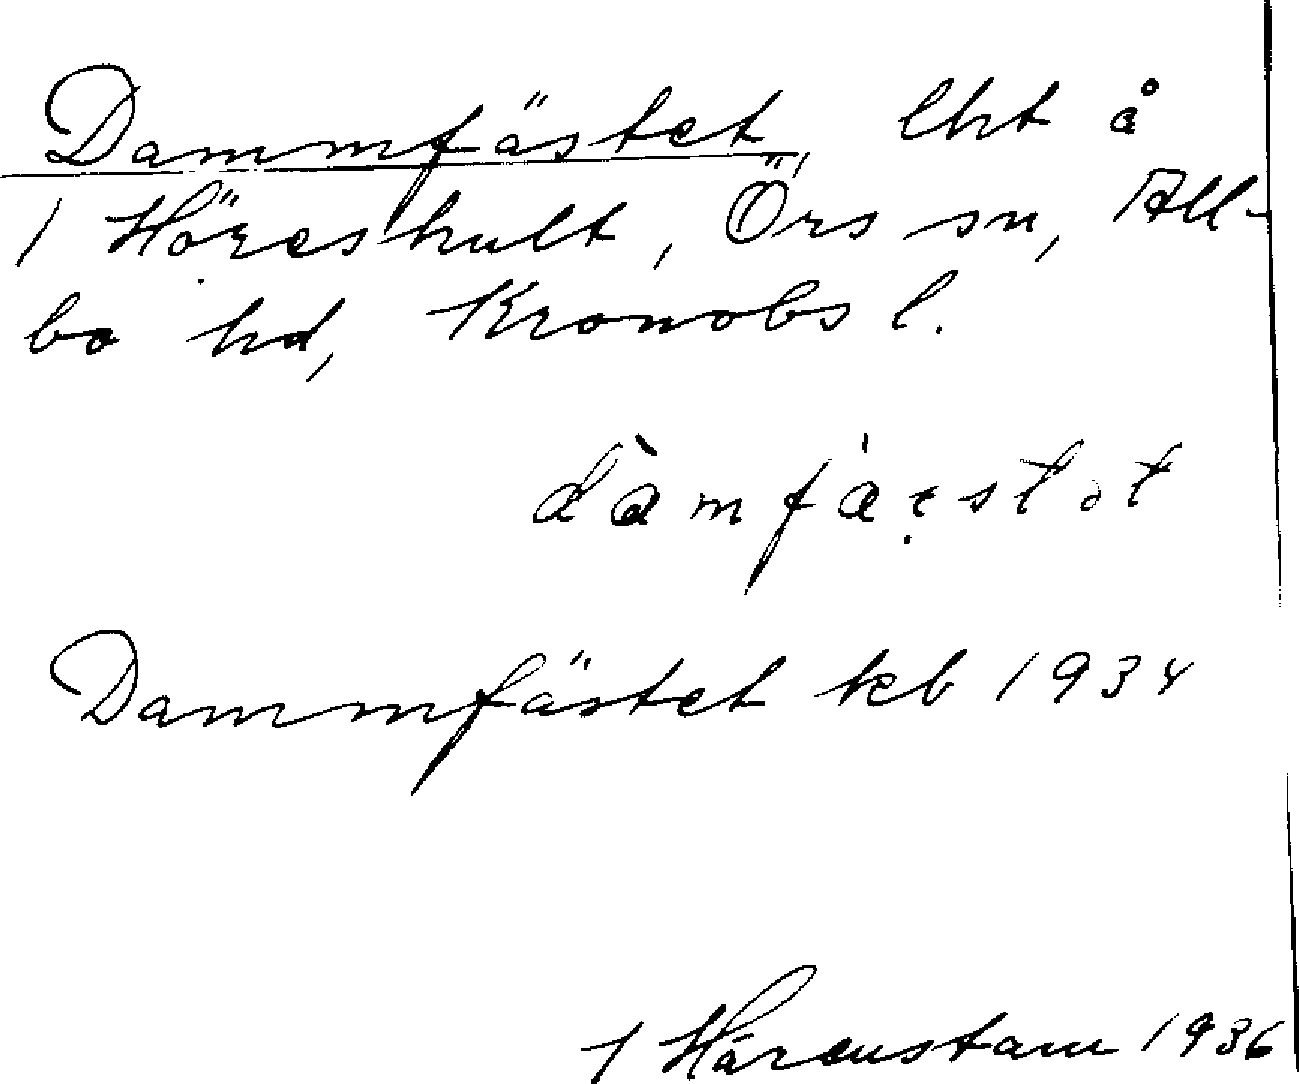 Dammfästet, lht å
1 Höreshult, Örs sn, All-
bo hd, Kronobs l.
dàmfæ̀stət
Dammfästet kb 1934
J Härenstam 1936